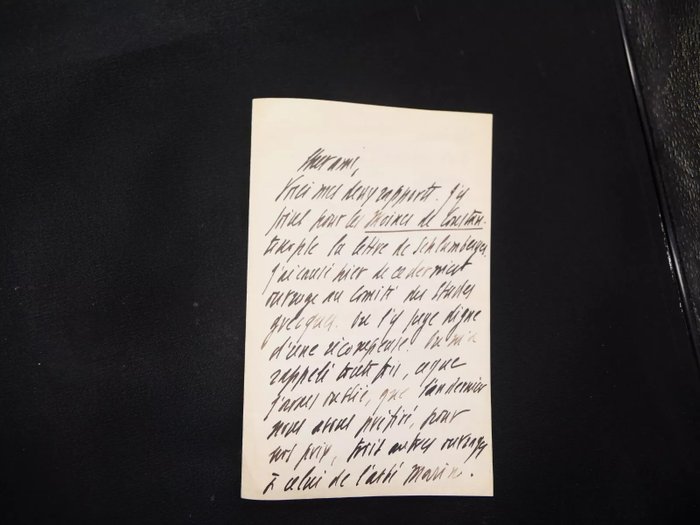 Cher ami,
Voici mes deux rapports. J'y
joins pour les Moines de Constan-
tinople la lettre de Schlumberger.
J'ai causé hier de ce dernier
ouvrage au Comité des Etudes
grecques. On l'y juge digne
d'une récompense. On m'a
rappelé toutefois, ce que
j'avais oublié, que l'an dernier
nous avons préféré, pour
nos prix, trois autres ouvrages
à celui de l'abbé Marin.